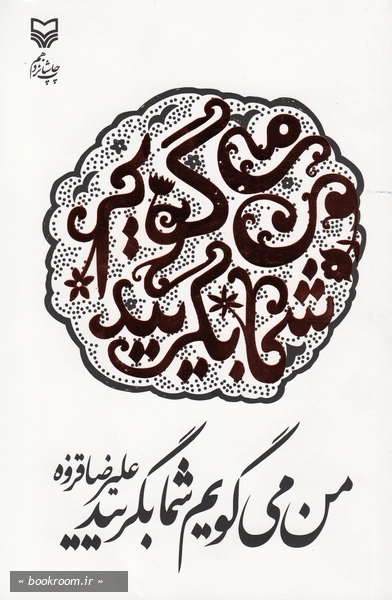 چاپ شانزدهم
من می گویم شما بگریید
من می گویم شما بگریید
علیرضا قزوه
« bookroom.ir »